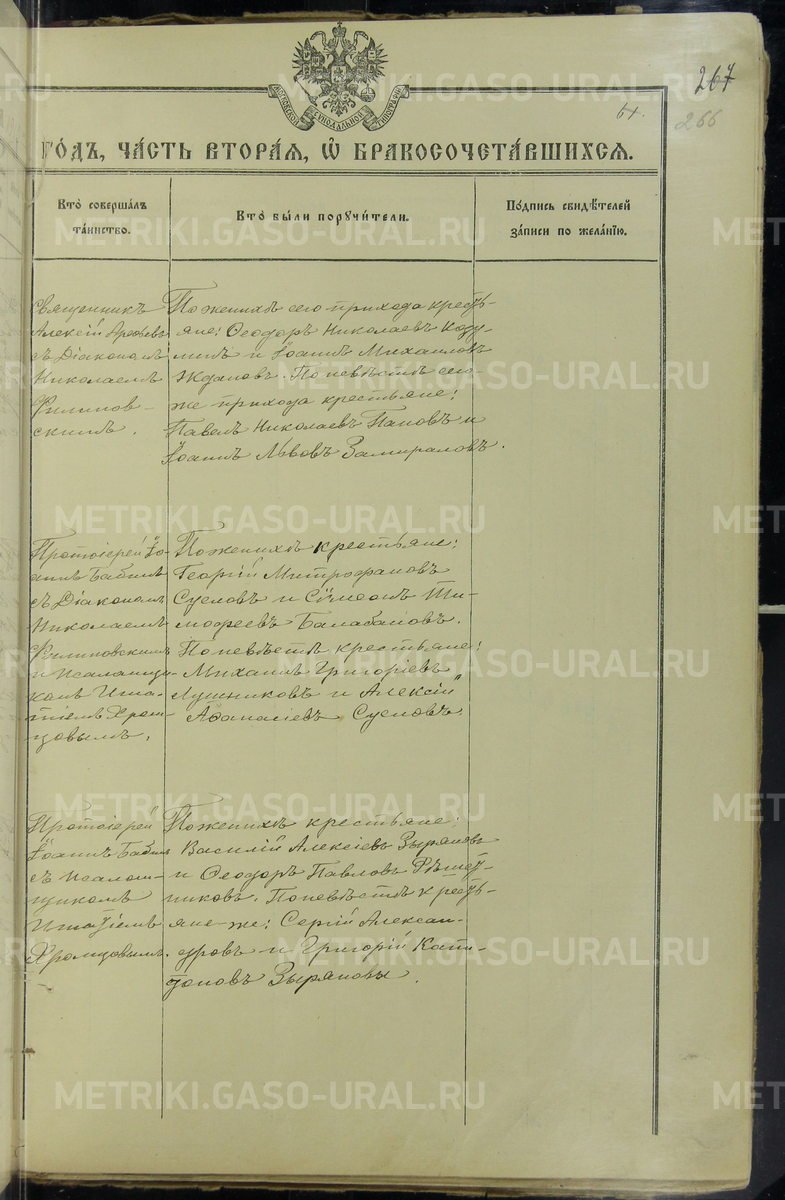 267
61.
266
МОСКОВСКОЙ СѴНОДАЛЬНОЙ ТИПОГРАФІИ
ГО́ДЪ, ЧА́СТЬ ВТОРА́Я, Ѡ҆ БРАКОСОЧЕТА́ВШИХСЯ.
Кто̀ соверша́лъ
та́инство.
Кто̀ бы́ли порꙋчи́тели.
По́дпись свидѣ́телей
за́писи по жела́нїю.
Священникъ
Алексій Арефьевъ
съ Діакономъ
Николаемъ
Филипов-
скимъ.
По женихѣ сего прихода кресть-
яне: Ѳеодоръ Николаевъ
и Іоаннъ Михаиловъ
Ждановъ. По невѣстѣ сего-
же прихода крестьяне:
Павелъ Николаевъ Поповъ и
Іоаннъ Львовъ Замираловъ.
Протоіерей Іо-
аннъ Бабинъ
съ Діакономъ
Николаемъ
Филиповскимъ
и Псаломщи-
комъ Игна-
тіемъ Хром-
цовымъ.
По женихѣ крестьяне:
Георгій Митрофановъ
Сусловъ и Сѵмеонъ Ти-
мофеевъ Балабановъ.
По невѣстѣ крестьяне:
Михаилъ Григоріевъ
Лушниковъ и Алексій
Аѳанасіевъ Сусловъ
Протоіерей
Іоаннъ Бабинъ
съ Псалом-
щикомъ
Игнатіемъ
Хромцовымъ.
По женихѣ крестьяне:
Василій Алексіевъ Зыряновъ
и Ѳеодоръ Павловъ Рѣшет-
никовъ. По невѣстѣ кресть-
яне-же: Сергій Алексан-
дровъ и Григорій Капи-
тоновъ Зыряновы.
METRIKI.GASO-URAL.RU